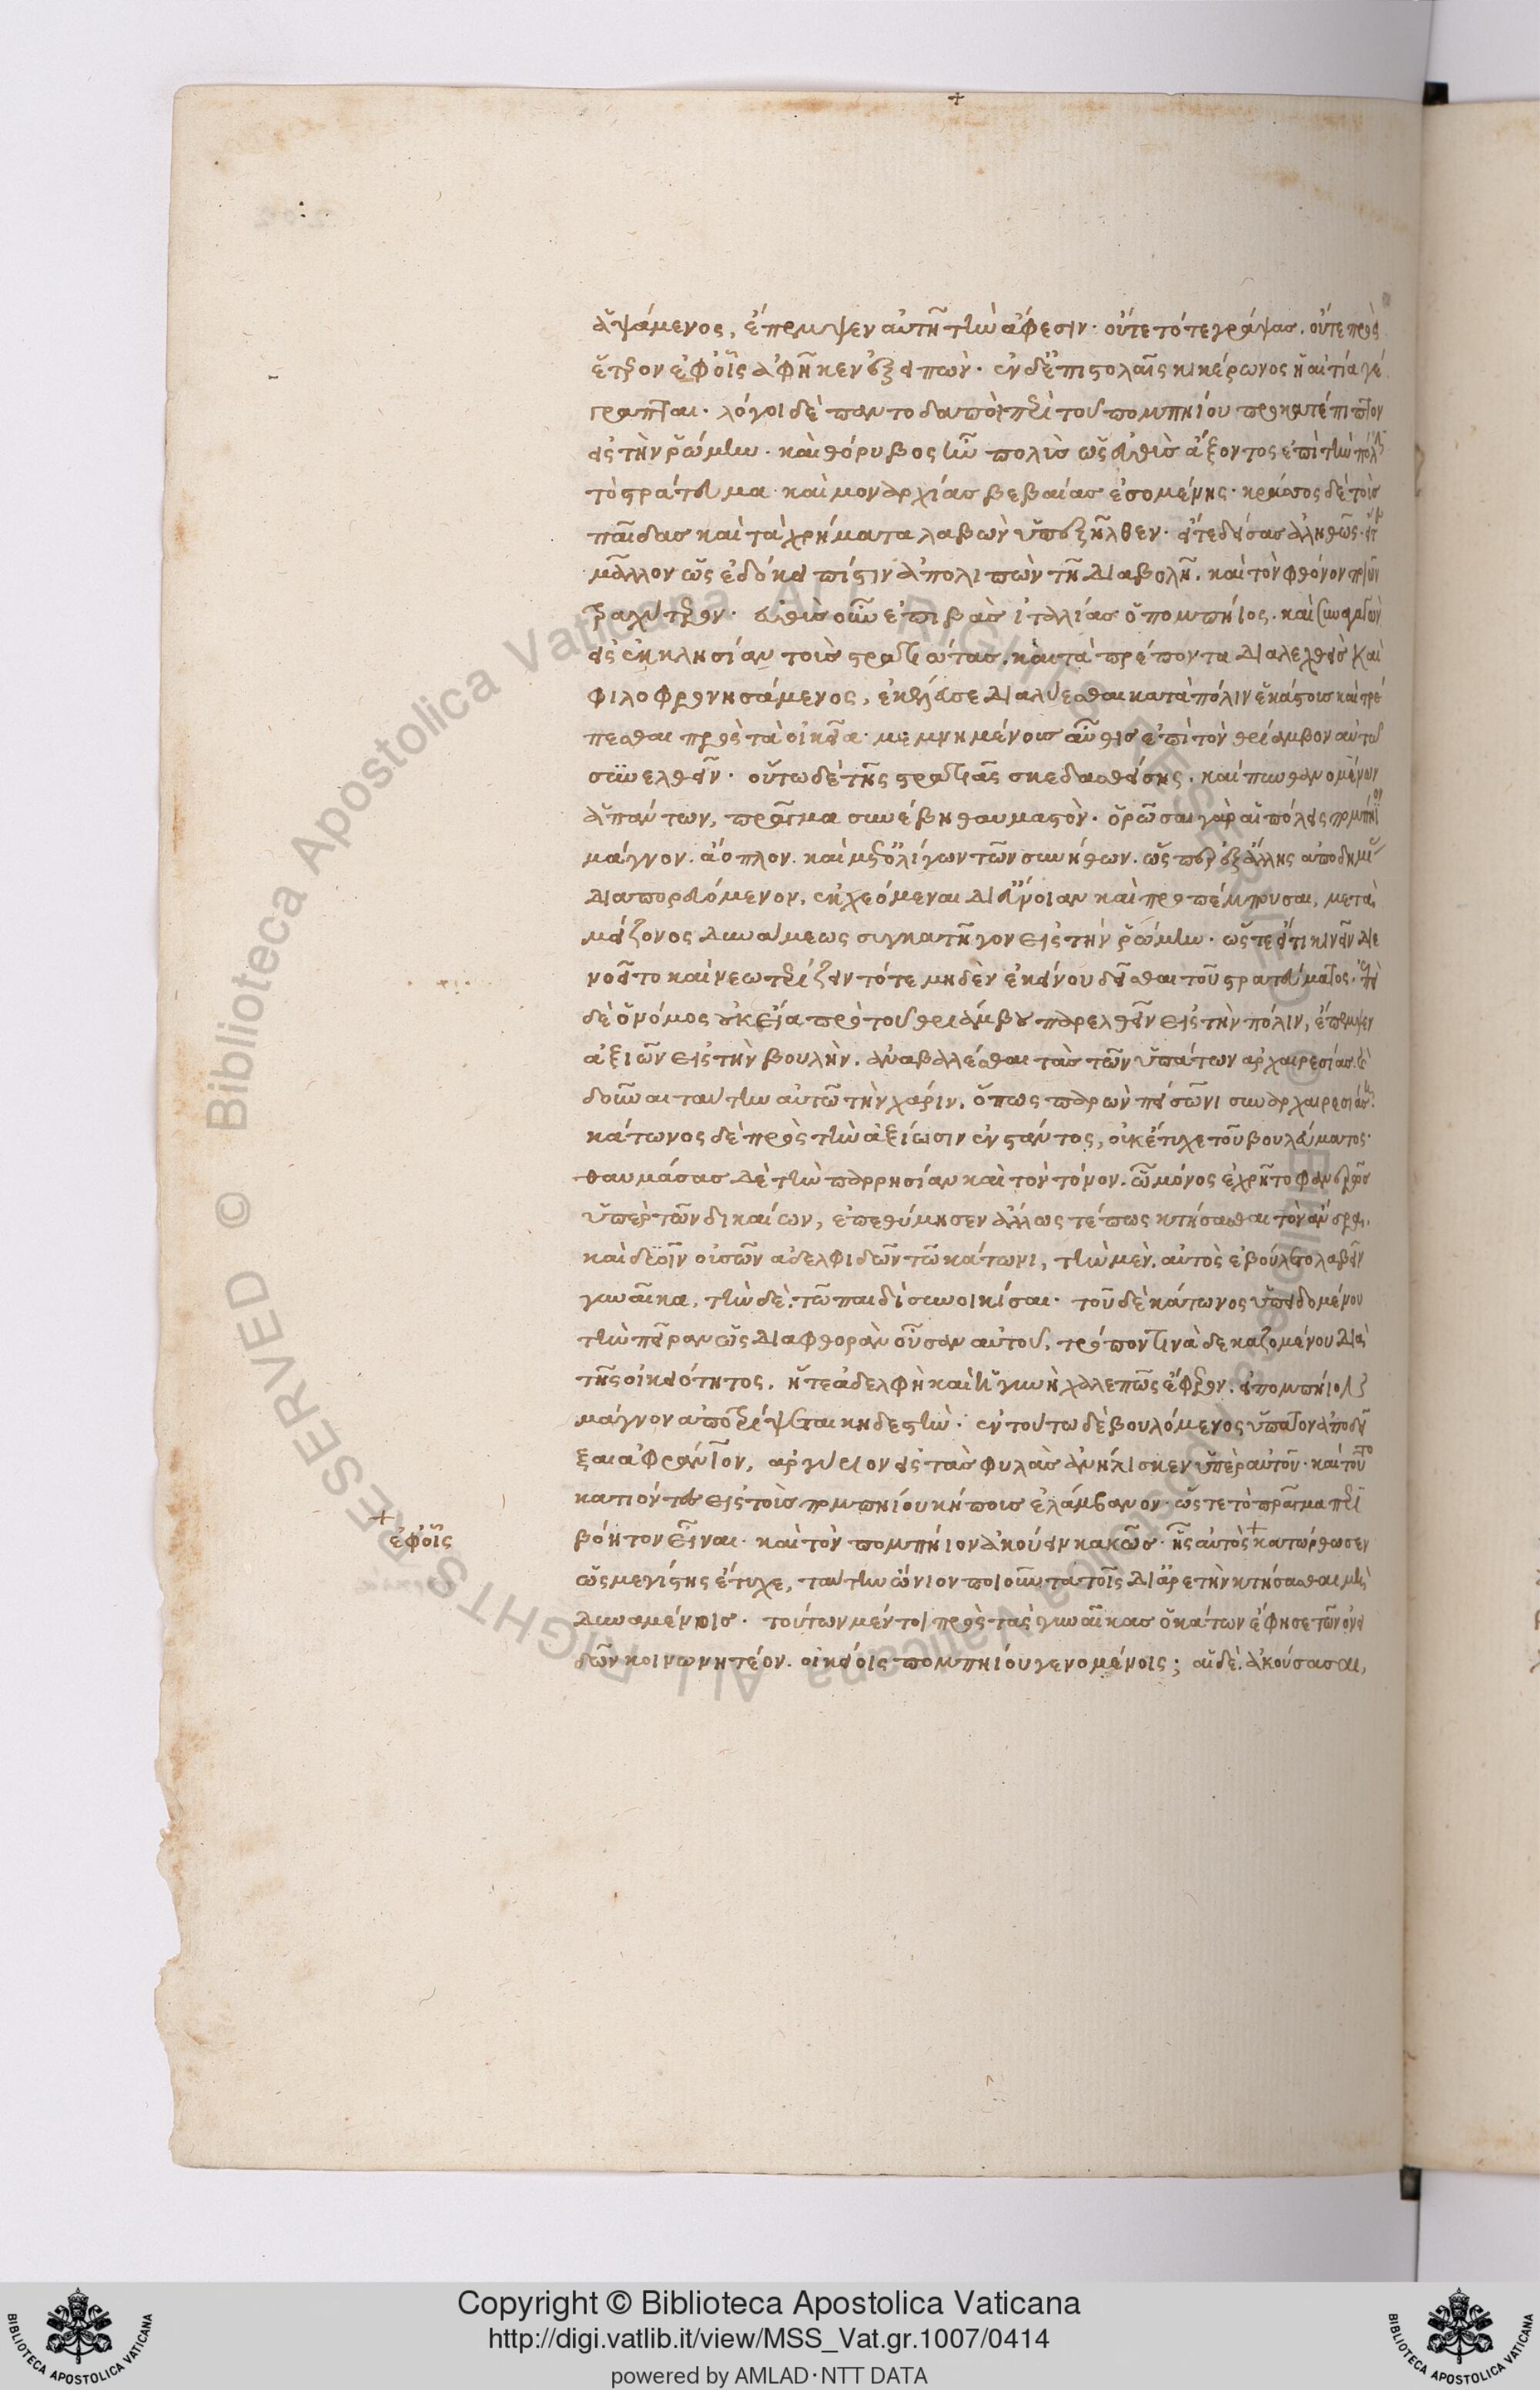 ἁψάμενος, ἔπεμψεν αὐτῇ τὴν ἄφεσιν· οὔτε τότε γράψας. οὔτε πρὸς
ὕστερον ἐφ' οἷς ἀφῆκεν ἐξειπών· ἐν δ' ἐπιστολαῖς κικέρωνος ἡ αἰτία γέ
γραπται· λόγοι δὲ παντοδαποὶ περὶ τοῦ πομπηίου προκατέπιπτον
εἰς τὴν ῥώμην· καὶ θόρυβος ἦν πολὺς ὡς εὐθὺς ἄξοντος ἐπὶ τὴν πόλιν
τὸ στράτευμα καὶ μοναρχίας βεβαίας ἐσομένης· κράσσος δὲ τοὺς
παῖδας καὶ τὰ χρήματα λαβὼν ὑπεξῆλθεν· εἴτε δείσας ἀληθῶς· εἴτε
μᾶλλον ὡς ἐδόκει πίστιν ἀπολιπὼν τῇ διαβολῇ. καὶ τὸν φθόνον ποιῶν
τραχύτερον· εὐθὺς οὖν ἐπιβὰς ἰταλίας ὁ πομπήιος. καὶ συναγαγὼν
εἰς ἐκκλησίαν τοὺς στρατιώτας. καὶ τὰ πρέποντα διαλεχθεὶς καὶ
φιλοφρονησάμενος, ἐκέλευσε διαλύεσθαι κατὰ πόλιν ἑκάστους καὶ τρέ
πεσθαι πρὸς τὰ οἰκεῖα· μεμνημένους αὖθις ἐπὶ τὸν θρίαμβον αὐτοῦ
συνελθεῖν· οὕτω δὲ τῆς στρατιᾶς σκεδασθείσης. καὶ πυνθανομένων
ἁπάντων, πρᾶγμα συνέβη θαυμαστόν· ὁρῶσαι γὰρ αἱ πόλεις πομπήιον
μάγνον. ἄοπλον. καὶ μετ' ὀλίγων τῶν συνήθων. ὥσπερ ἐξ ἄλλης ἀποδημίας
διαπορευόμενον, ἐκχεόμεναι δι' εὔνοιαν καὶ προπέμπουσαι, μετὰ
μείζονος δυνάμεως συγκατῆγον εἰς τὴν ῥώμην· ὥστε εἴ τι κινεῖν διε
νοεῖτο καὶ νεωτερίζειν τότε μηδὲν ἐκείνου δεῖσθαι τοῦ στρατεύματος. ἐπεὶ
δὲ ὁ νόμος οὐκ εἴα πρὸ τοῦ θριάμβου παρελθεῖν εἰς τὴν πόλιν, ἔπεμψεν
ἀξιῶν εἰς τὴν βουλὴν. ἀναβαλέσθαι τὰς τῶν ὑπάτων ἀρχαιρεσίας. καὶ
δοῦναι ταύτην αὐτῷ τὴν χάριν. ὅπως παρὼν πείσωνι συναρχαιρεσιάσῃ·
κάτωνος δὲ πρὸς τὴν ἀξίωσιν ἐνστάντος, οὐκ ἔτυχε τοῦ βουλεύματος·
θαυμάσας δὲ τὴν παρρησίαν καὶ τὸν τόνον. ᾧ μόνος ἐχρῆτο φανερῶς
ὑπὲρ τῶν δικαίων, ἐπεθύμησεν ἄλλως τέ πως κτήσασθαι τὸν ἄνδρα.
καὶ δυοῖν οὐσῶν ἀδελφιδῶν τῷ κάτωνι, τὴν μὲν. αὐτὸς ἐβούλετο λαβεῖν
γυναῖκα, τὴν δὲ. τῷ παιδὶ συνοικίσαι· τοῦ δὲ κάτωνος ὑπειδομένου
τὴν πεῖραν ὡς διαφθορὰν οὖσαν αὐτοῦ, τρόπον τινὰ δεκαζομένου διὰ
τῆς οἰκειότητος. ἥ τε ἀδελφὴ καὶ ἡ γυνὴ χαλεπῶς ἔφερον. εἰ πομπήιον
μάγνον ἀποτρίψεται κηδεστὴν· ἐν τούτῳ δὲ βουλόμενος ὕπατον ἀποδεῖ
ξαι ἀφράνιον, ἀργύριον εἰς τὰς φυλὰς ἀνήλισκεν ὑπὲρ αὐτοῦ· καὶ τοῦτο
κατιόντες εἰς τοὺς πομπηίου κήπους ἐλάμβανον· ὥστε τὸ πρᾶγμα περι
βόητον εἶναι· καὶ τὸν πομπήιον ἀκούειν κακῶς· ἧς αὐτὸς + κατώρθωσεν
+ ἐφ' οἷς
ὡς μεγίστης ἔτυχε, ταύτην ὤνιον ποιοῦντα τοῖς δι' ἀρετὴν κτήσασθαι μὴ
δυναμένοις· τούτων μέντοι πρὸς τὰς γυναῖκας ὁ κάτων ἔφησε τῶν ὀνει
δῶν κοινωνητέον. οἰκείοις πομπηίου γενομένοις; αἱ δὲ. ἀκούσασαι,
Copyright © Biblioteca Apostolica Vaticana
http://digi.vatlib.it/view/MSS_Vat.gr.1007/0414
powered by AMLAD·NTT DATA
BIBLIOTECA APOSTOLICA VATICANA
BIBLIOTECA APOSTOLICA VATICANA
Biblioteca Apostolica Vaticana ALL RIGHTS RESERVED ©